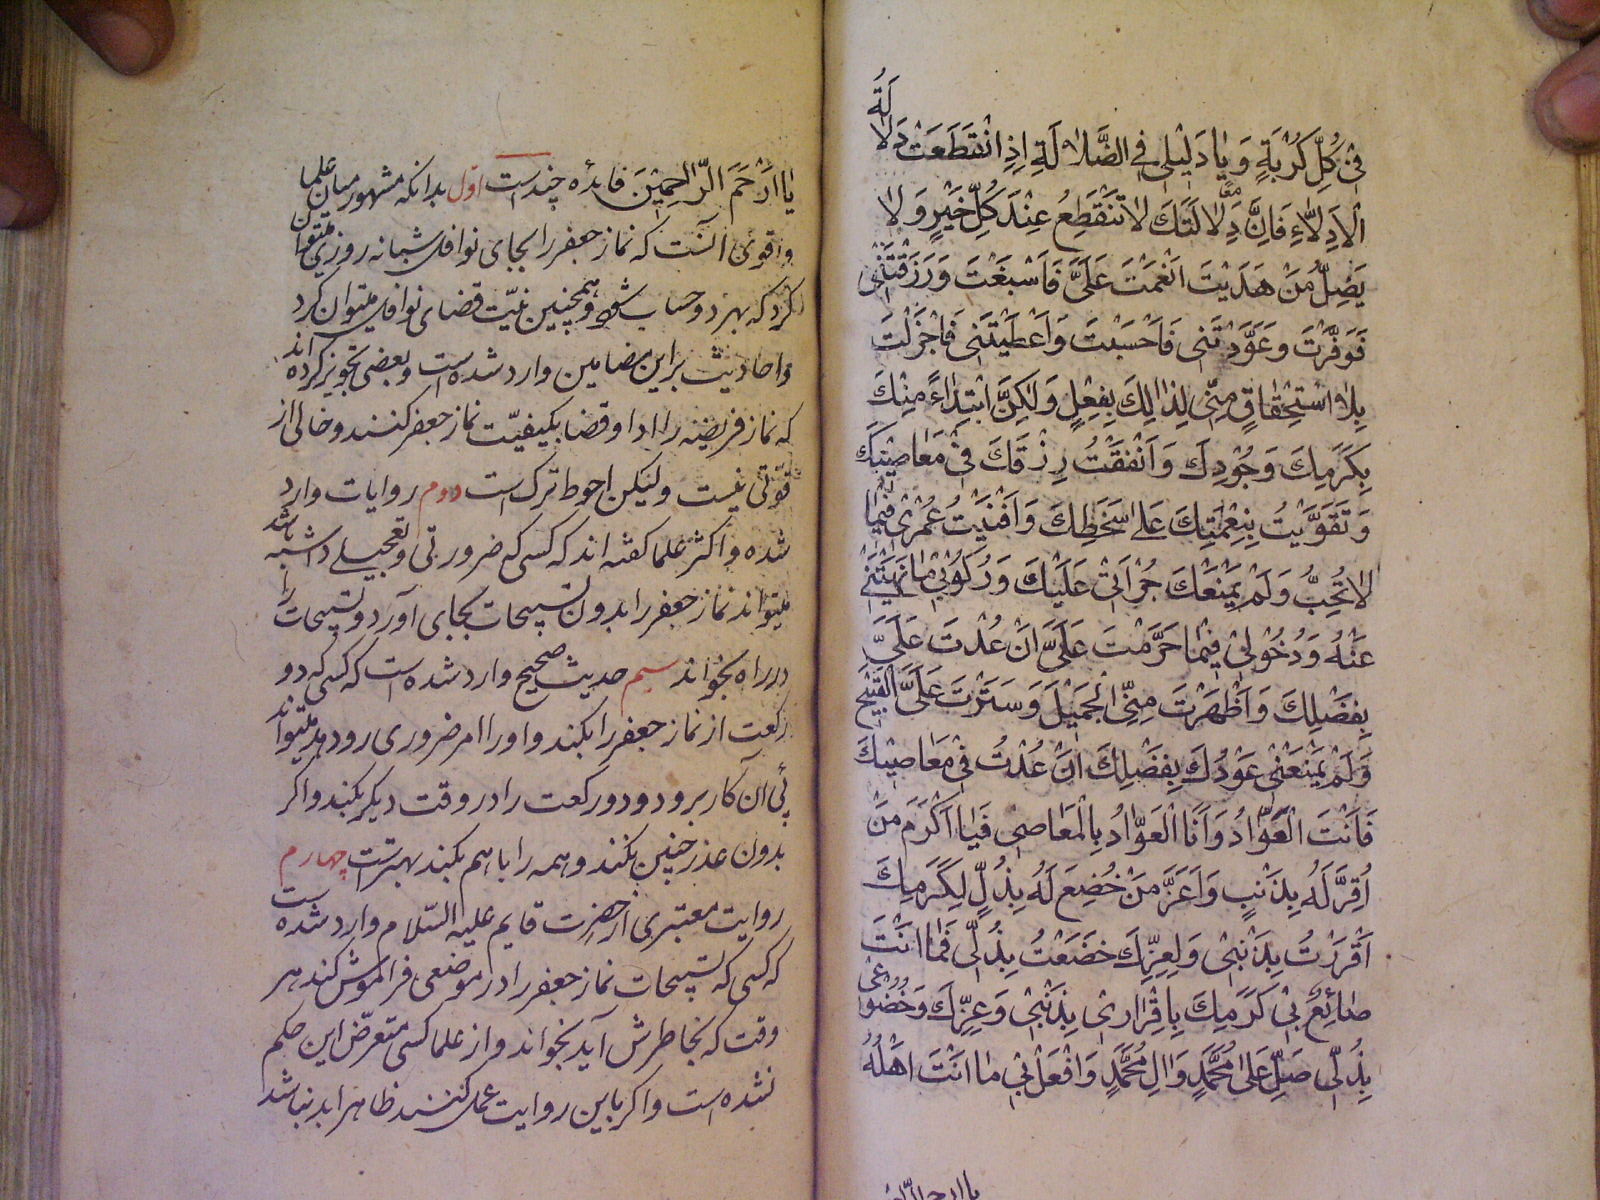 فِي كُلِّ كُرْبَةٍ وَيَا دَلِيلِي فِي الضَّلَالَةِ اِذِ انْقَطَعَتْ دَلَالَةُ
الْاَدِلَّاءِ فَاِنَّ دَلَالَتَكَ لَا تَنْقَطِعُ عِنْدَ كُلِّ خَيْرٍ وَلَا
يَضِلُّ مَنْ هَدَيْتَ اَنْعَمْتَ عَلَيَّ فَاَسْبَغْتَ وَرَزَقْتَنِي
فَوَفَّرْتَ وَعَوَّدْتَنِي فَاَحْسَنْتَ وَاَعْطَيْتَنِي فَاَجْزَلْتَ
بِلَا اسْتِحْقَاقٍ مِنِّي لِذَالِكَ بِفِعْلٍ وَلَكِنَّ ابْتِدَاءً مِنْكَ
بِكَرَمِكَ وَجُوْدِكَ وَاَنْفَقْتُ رِزْقَكَ فِي مَعَاصِيْكَ
وَتَقَوَّيْتُ بِنِعْمَتِكَ عَلَى سَخَطِكَ وَاَفْنَيْتُ عُمْرِي فِيْمَا
لَا تُحِبُّ وَلَمْ يَمْنَعْكَ جُرْاَتِي عَلَيْكَ وَرُكُوْبِي مَا نَهَيْتَنِي
عَنْهُ وَدُخُوْلِي فِيْمَا حَرَّمْتَ عَلَيَّ اَنْ عُدْتَ عَلَيَّ
بِفَضْلِكَ وَاَظْهَرْتَ مِنِّي الْجَمِيْلَ وَسَتَرْتَ عَلَيَّ الْقَبِيْحَ
وَلَمْ يَمْنَعْنِي عَوْدُكَ بِفَضْلِكَ اَنْ عُدْتُ فِي مَعَاصِيْكَ
فَاَنْتَ الْعَوَّادُ وَاَنَا الْعَوَّادُ بِالْمَعَاصِي فَيَا اَكْرَمَ مَنْ
اُقِرَّ لَهُ بِذَنْبٍ وَاَعَزَّ مَنْ خُضِعَ لَهُ بِذُلٍّ لِكَرَمِكَ
اَقْرَرْتُ بِذَنْبِي وَلِعِزِّكَ خَضَعْتُ بِذُلِّي فَمَا اَنْتَ
صَانِعٌ بِي كَرَمِكَ بِاِقْرَارِي بِذَنْبِي وَعِزِّكَ وَخُضُوْعِي
بِذُلِّي صَلِّ عَلَى مُحَمَّدٍ وَالِ مُحَمَّدٍ وَافْعَلْ بِي مَا اَنْتَ اَهْلُهُ
يَا اَرْحَمَ الرَّاحِمِيْنَ فائده چند است اوّل بدانکه مشهور میان علما
واقوی آنست که نماز جعفر را بجای نوافل شبانه روزی میتوان
کرد که بهر دو حساب شود و همچنین نیّت قضای نوافل میتوان کرد
و احادیث بر این مضامین وارد شده است و بعضی تجویز کرده اند
که نماز فریضه را ادا و قضا بکیفیّت نماز جعفر کنند و خالی از
قوّتی نیست ولیکن احوط ترک است دوم روایات وارد
شده و اکثر علما گفته اند که کسی که ضرورتی و تعجیلی داشته باشد
میتواند نماز جعفر را بدون تسبیحات بجای آورد و تسبیحات را
در راه بخواند سیم حدیث صحیح وارد شده است که کسی که دو
رکعت از نماز جعفر را بکند و او را امر ضروری رو دهد میتواند
پئی آن کار برود و دو رکعت را در وقت دیگر بکند و اگر
بدون عذر چنین نکند و همه را با هم بکند بهتر است چهارم
روایت معتبری از حضرت قایم علیه السّلام وارد شده است
که کسی که تسبیحات نماز جعفر را در موضعی فراموش کند هر
وقت که بخاطرش آید بخواند و از علما کسی متعرّض این حکم
نشده است و اگر باین روایت عمل کنند ظاهرا بد نباشد